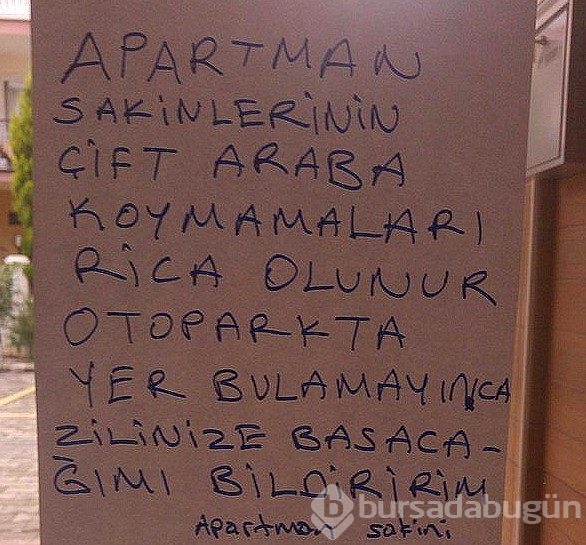 APARTMAN
SAKİNLERİNİN
ÇİFT ARABA
KOYMAMALARI
RİCA OLUNUR
OTOPARKTA
YER BULAMAYINCA
ZİLİNİZE BASACA-
ĞIMI BİLDİRİRİM
Apartman sakini
b bursadabugün